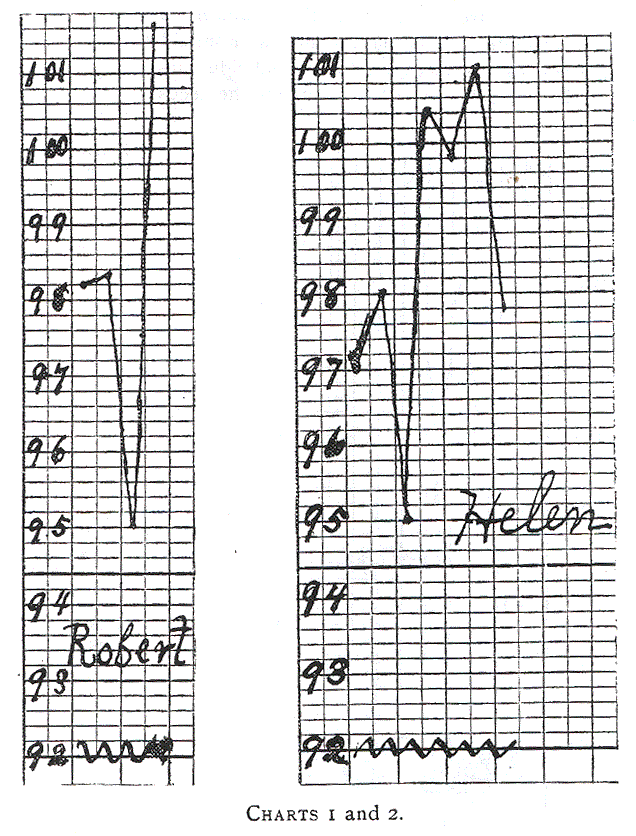 101
100
99
98
97
96
95
94
Robert
93
92
101
100
99
98
97
96
95
Helen
94
93
92
CHARTS 1 and 2.